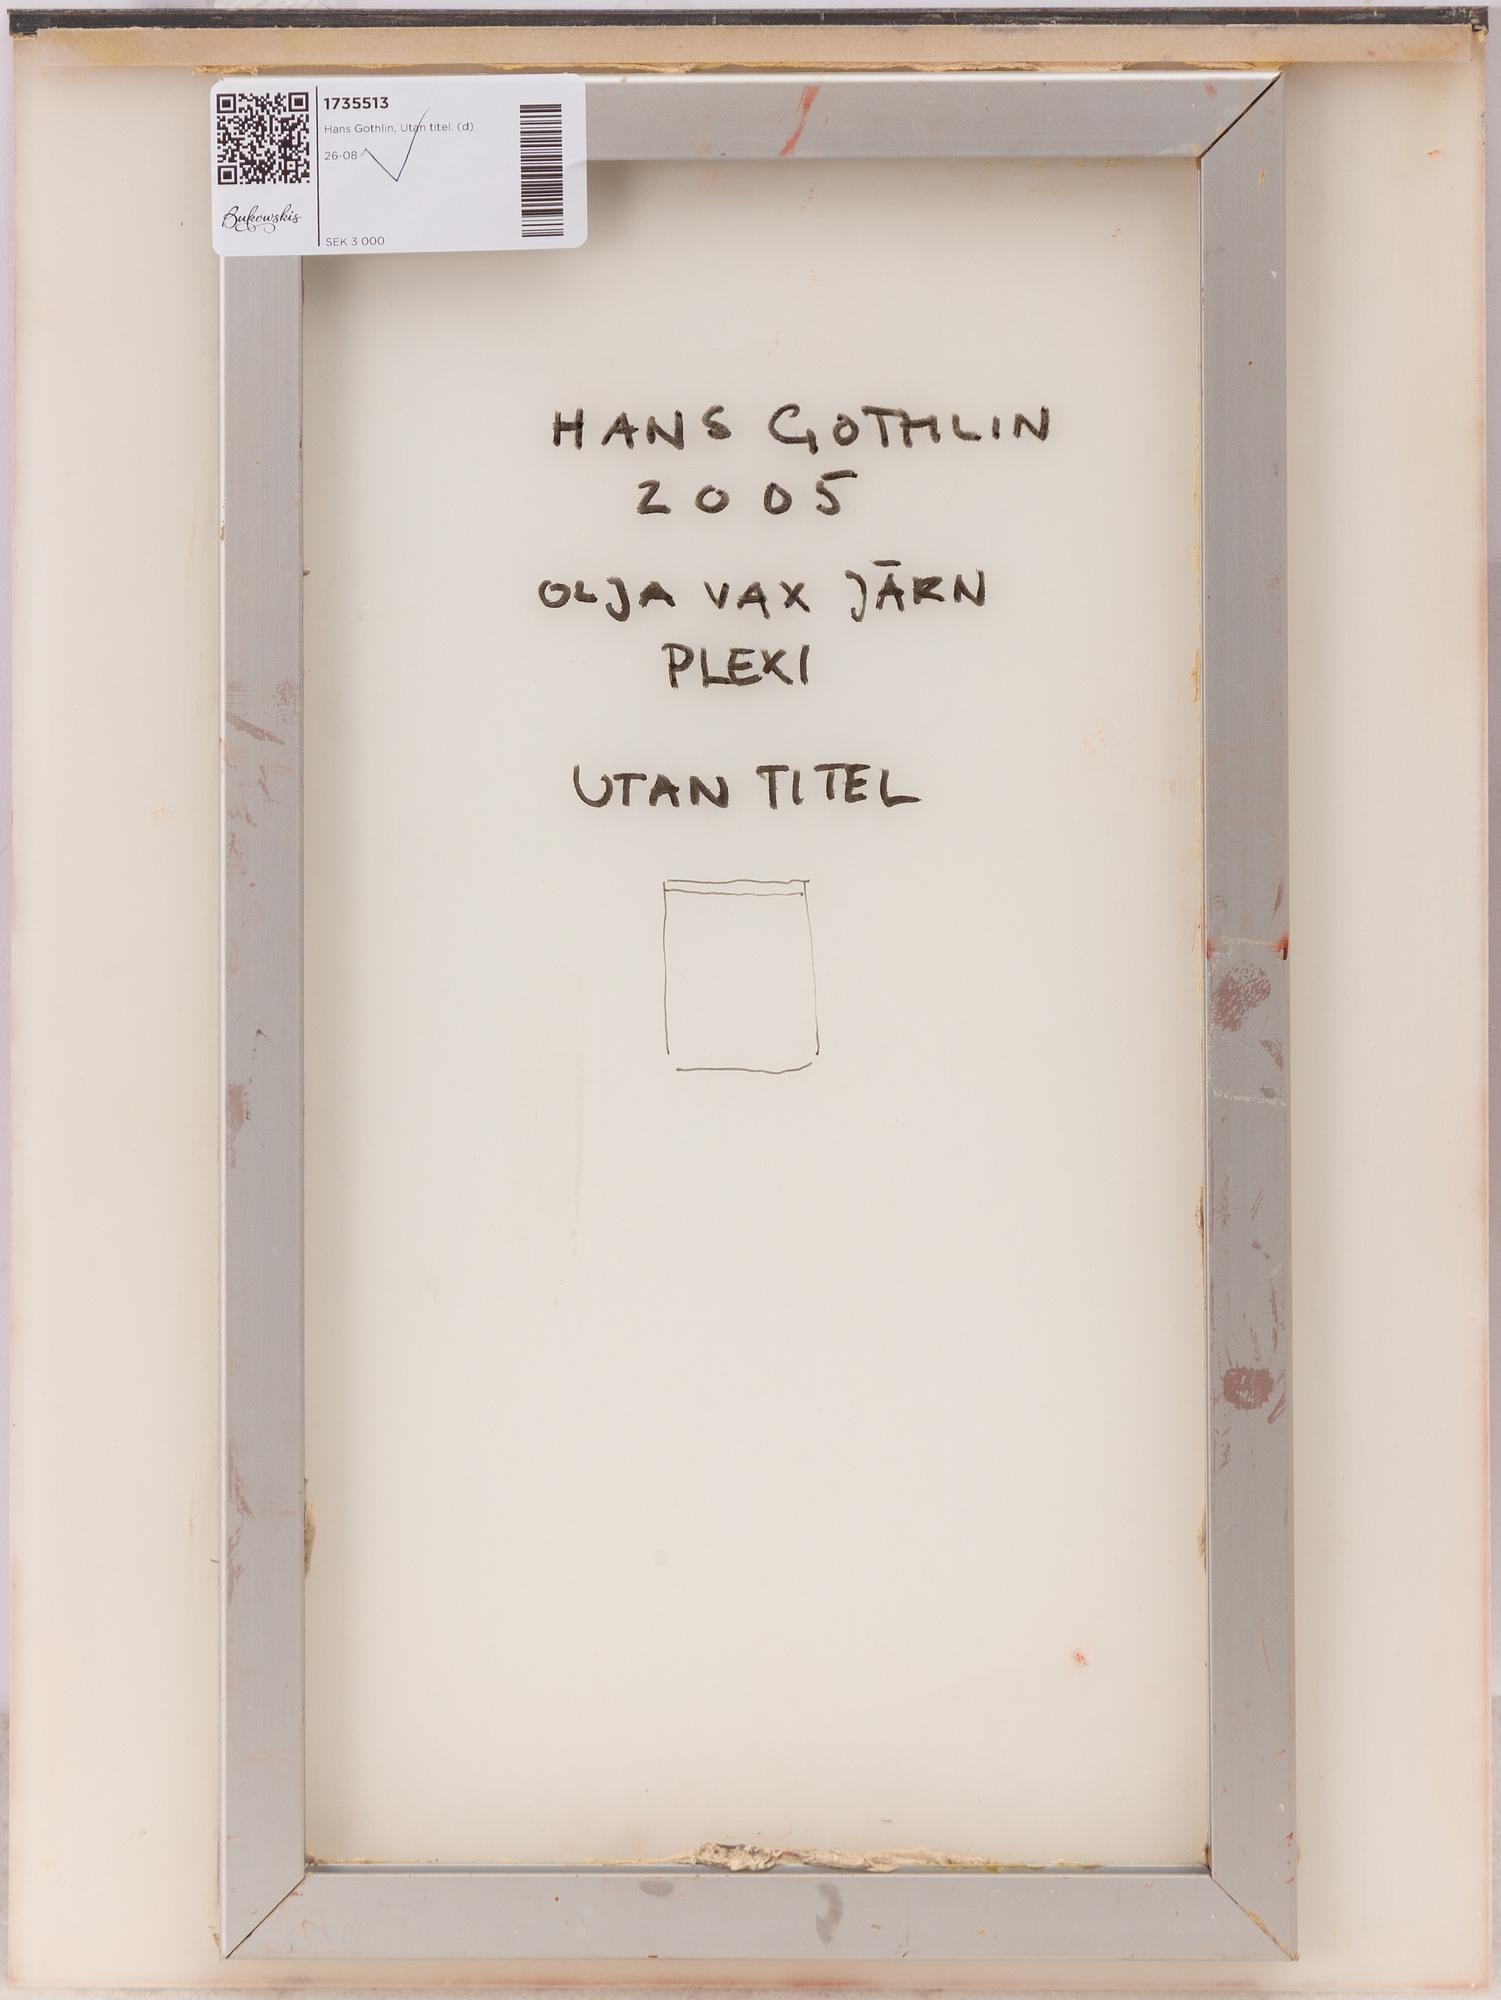 1735513
Hans Gothlin, Utan titel. (d)
26-08
Bukowskis
SEK 3 000
HANS GOTHLIN
2005
OLJA VAX JÄRN
PLEXI
UTAN TITEL